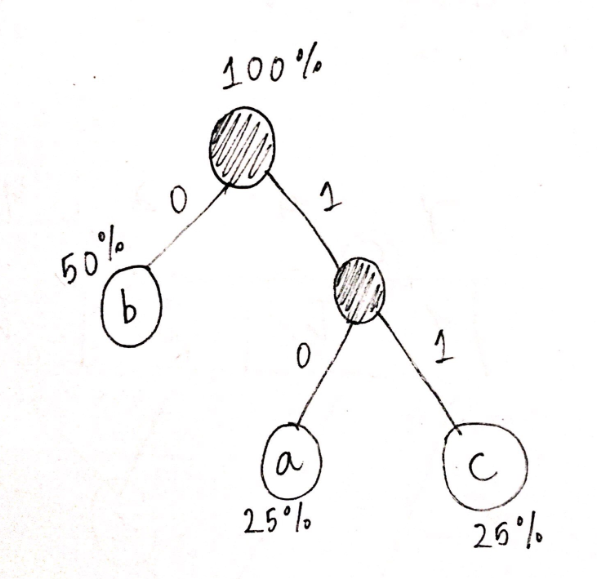 100%
0
1
50%
b
0
1
a
c
25%
25%